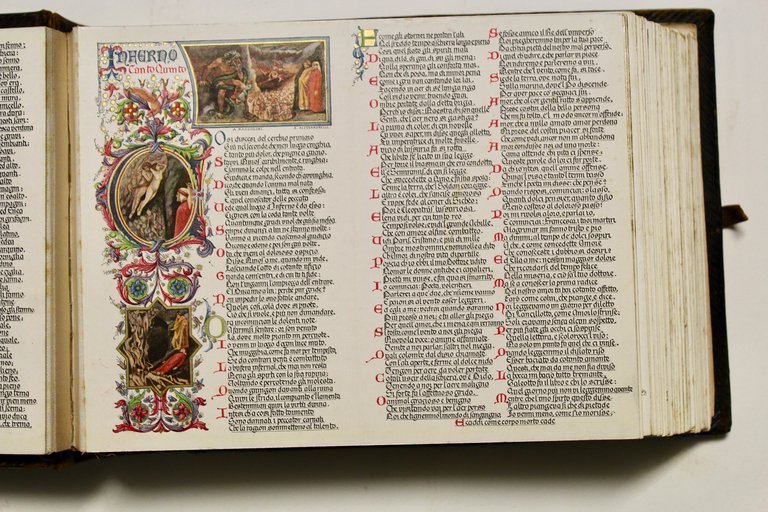 INFERNO
Canto Quinto
Così discesi del cerchio primaio
Giù nel secondo, che men luogo cinghia,
E tanto più dolor, che pugne a guaio.
Stavvi Minos orribilmente, e ringhia:
Esamina le colpe nell'entrata,
Giudica e manda, secondo ch'avvinghia.
Dico, che quando l'anima mal nata
Gli vien dinanzi, tutta si confessa;
E quel conoscitor delle peccata
Vede qual luogo d'Inferno è da essa:
Cignesi con la coda tante volte
Quantunque gradi vuol che giù sia messa.
Sempre dinanzi a lui ne stanno molte:
Vanno a vicenda ciascuna al giudizio;
Dicono e odono e poi son giù volte.
O tu, che vieni al doloroso ospizio,
Disse Minos a me, quando mi vide,
Lasciando l'atto di cotanto ufizio
Guarda com'entri, e di cui tu ti fide:
Non t'inganni l'ampiezza dell'entrare.
E il Duca mio a lui: perchè pur gride?
Non impedir lo suo fatale andare:
Vuolsi così, colà dove si puote
Ciò che si vuole, e più non dimandare.
Ora incomincian le dolenti note
A farmisi sentire: or son venuto
Là dove molto pianto mi percote.
Io venni in luogo d'ogni luce muto,
Che mugghia, come fa mar per tempesta,
Se da contrari venti è combattuto.
La bufera infernal, che mai non resta
Mena gli spirti con la sua rapina;
Voltando e percotendo gli molesta.
Quando giungon davanti alla ruina
Quivi le strida, il compianto e il lamento
Bestemmian quivi la virtù divina.
Intesi che a così fatto tormento
Sono dannati i peccator carnali
Che la ragion sommettono al talento.
E come gli stornei ne portan l'ali
Nel freddo tempo a schiera larga e piena
Così quel fiato gli spiriti mali
Di qua, di là, di giù, di su gli mena:
Nulla speranza gli conforta mai
Non che di posa, ma di minor pena
E come i gru van cantando lor lai,
Facendo in aer di sè lunga riga
Così vid'io venir traendo guai
Ombre portate dalla detta briga:
Perch'io dissi: Maestro, chi son quelle
Genti, che l'aer nero sì gastiga?
La prima di color, di cui novelle
Tu vuoi saper, mi disse quegli allotta,
Fu imperatrice di molte favelle.
A vizio di lussuria fu sì rotta
Che libito fe' licito in sua legge
Per torre il biasmo in che era condotta
Ell'è Semiramis, di cui si legge
Che succedette a Nino e fu sua sposa:
Tenne la terra, che il Soldan corregge.
L'altra è colei, che s'ancise amorosa
E ruppe fede al cener di Sicheo:
Poi è Cleopatras lussuriosa.
Elena vidi, per cui tanto reo
Tempo si volse, e vidi il grande Achille,
Che con amore al fine combatteo
Vidi Paris, Tristano; e più di mille
Ombre mostrommi, e nominolle, a dito
Che amor di nostra vita dipartille
Poscia ch'io ebbi il mio Dottore udito
Nomar le donne antiche e i cavalieri
Pietà mi vinse, e fui quasi smarrito.
Io cominciai: Poeta, volentieri
Parlerei a que' due, che insieme vanno
E paion sì al vento esser leggieri
Ed egli a me: vedrai, quando saranno
Più presso a noi; e tu allor gli prega
Per quell'amor, che i mena; e quei verranno
Sì tosto come il vento a noi gli piega
Muovi la voce: o anime affannate
Venite a noi parlar, s'altri nol niega
Quali colombe dal disio chiamate
Con l'ali aperte e ferme al dolce nido
Vengon per aere da voler portate
Cotali uscir della schiera ov'è Dido,
Venendo a noi per l'aer maligno
Sì forte fu l'affettuoso grido
O animal grazioso e benigno
Che visitando vai per l'aer perso
Noi che tignemmo il mondo di sanguigno
Se fosse amico il Re dell'Universo
Noi pregheremmo lui per la tua pace
Ch'hai pietà del nostro mal perverso.
Di quel ch'udire, e che parlar ti piace
Noi udiremo e parleremo a vui,
Mentre che il vento, come fa, si tace.
Siede la terra, ove nata fui,
Sulla marina, dove il Po discende
Per aver pace co' seguaci sui.
Amor, che al cor gentil ratto s'apprende,
Prese costui della bella persona
Che mi fu tolta, e il modo ancor m'offende.
Amor, ch'a nullo amato amar perdona
Mi prese del costui piacer sì forte
Che, come vedi, ancor non m'abbandona.
Amor condusse noi ad una morte:
Caina attende chi vita ci spense.
Queste parole da lor ci fur porte.
Da ch'io intesi quell'anime offense
Chinai il viso, e tanto il tenni basso
Finchè il Poeta mi disse: che pense?
Quando risposi, cominciai: o lasso,
Quanti dolci pensier, quanto disio
Menò costoro al doloroso passo!
Poi mi rivolsi a loro, e parlai io,
E cominciai: Francesca, i tuoi martiri
A lagrimar mi fanno tristo e pio
Ma dimmi: al tempo de' dolci sospiri
A che, e come concedette Amore
Che conosceste i dubbiosi desiri?
Ed ella a me: nessun maggior dolore
Che ricordarsi del tempo felice
Nella miseria, e ciò sa il tuo dottore.
Ma se a conoscer la prima radice
Del nostro amor tu hai cotanto affetto,
Farò come colui, che piange, e dice.
Noi leggevamo un giorno per diletto
Di Lancillotto, come Amor lo strinse:
Soli eravamo e senza alcun sospetto
Per più fiate gli occhi ci sospinse
Quella lettura, e scolorocci il viso:
Ma solo un punto fu quel che ci vinse.
Quando leggemmo il disiato riso
Esser baciato da cotanto amante
Questi, che mai da me non fia diviso
La bocca mi baciò tutto tremante.
Galeotto fu il libro e chi lo scrisse:
Quel giorno più non vi leggemmo avante
Mentre che l'uno spirto questo disse
L'altro piangeva sì che di pietade
Io venni meno, come s'io morisse,
E caddi, come corpo morto cade